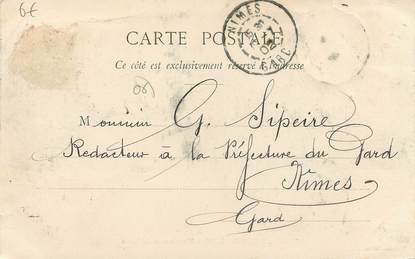 6€
NIMES
GARD
CARTE POSTALE
Ce côté est exclusivement réservé à l'adresse
(06)
Monsieur G. Sipeire
Redacteur à la Préfecture du Gard
Nîmes
Gard